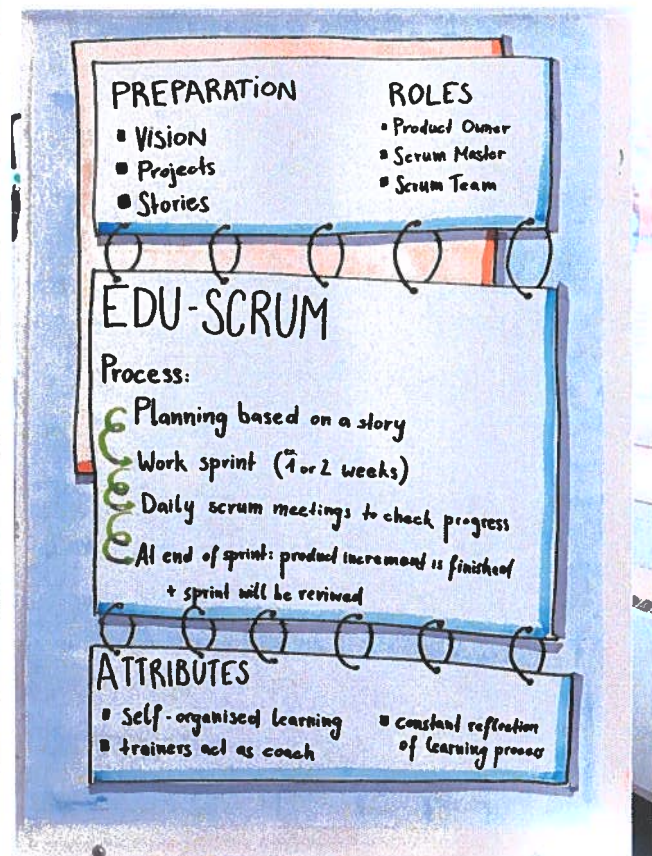 PREPARATION
▪ VISION
▪ Projects
▪ Stories
ROLES
▪ Product Owner
▪ Scrum Master
▪ Scrum Team
EDU-SCRUM
Process:
Planning based on a story
Work sprint (1 or 2 weeks)
Daily scrum meetings to check progress
At end of sprint: product increment is finished
+ sprint will be reviewed
ATTRIBUTES
▪ Self-organised learning
▪ trainers act as coach
▪ constant reflection
of learning process